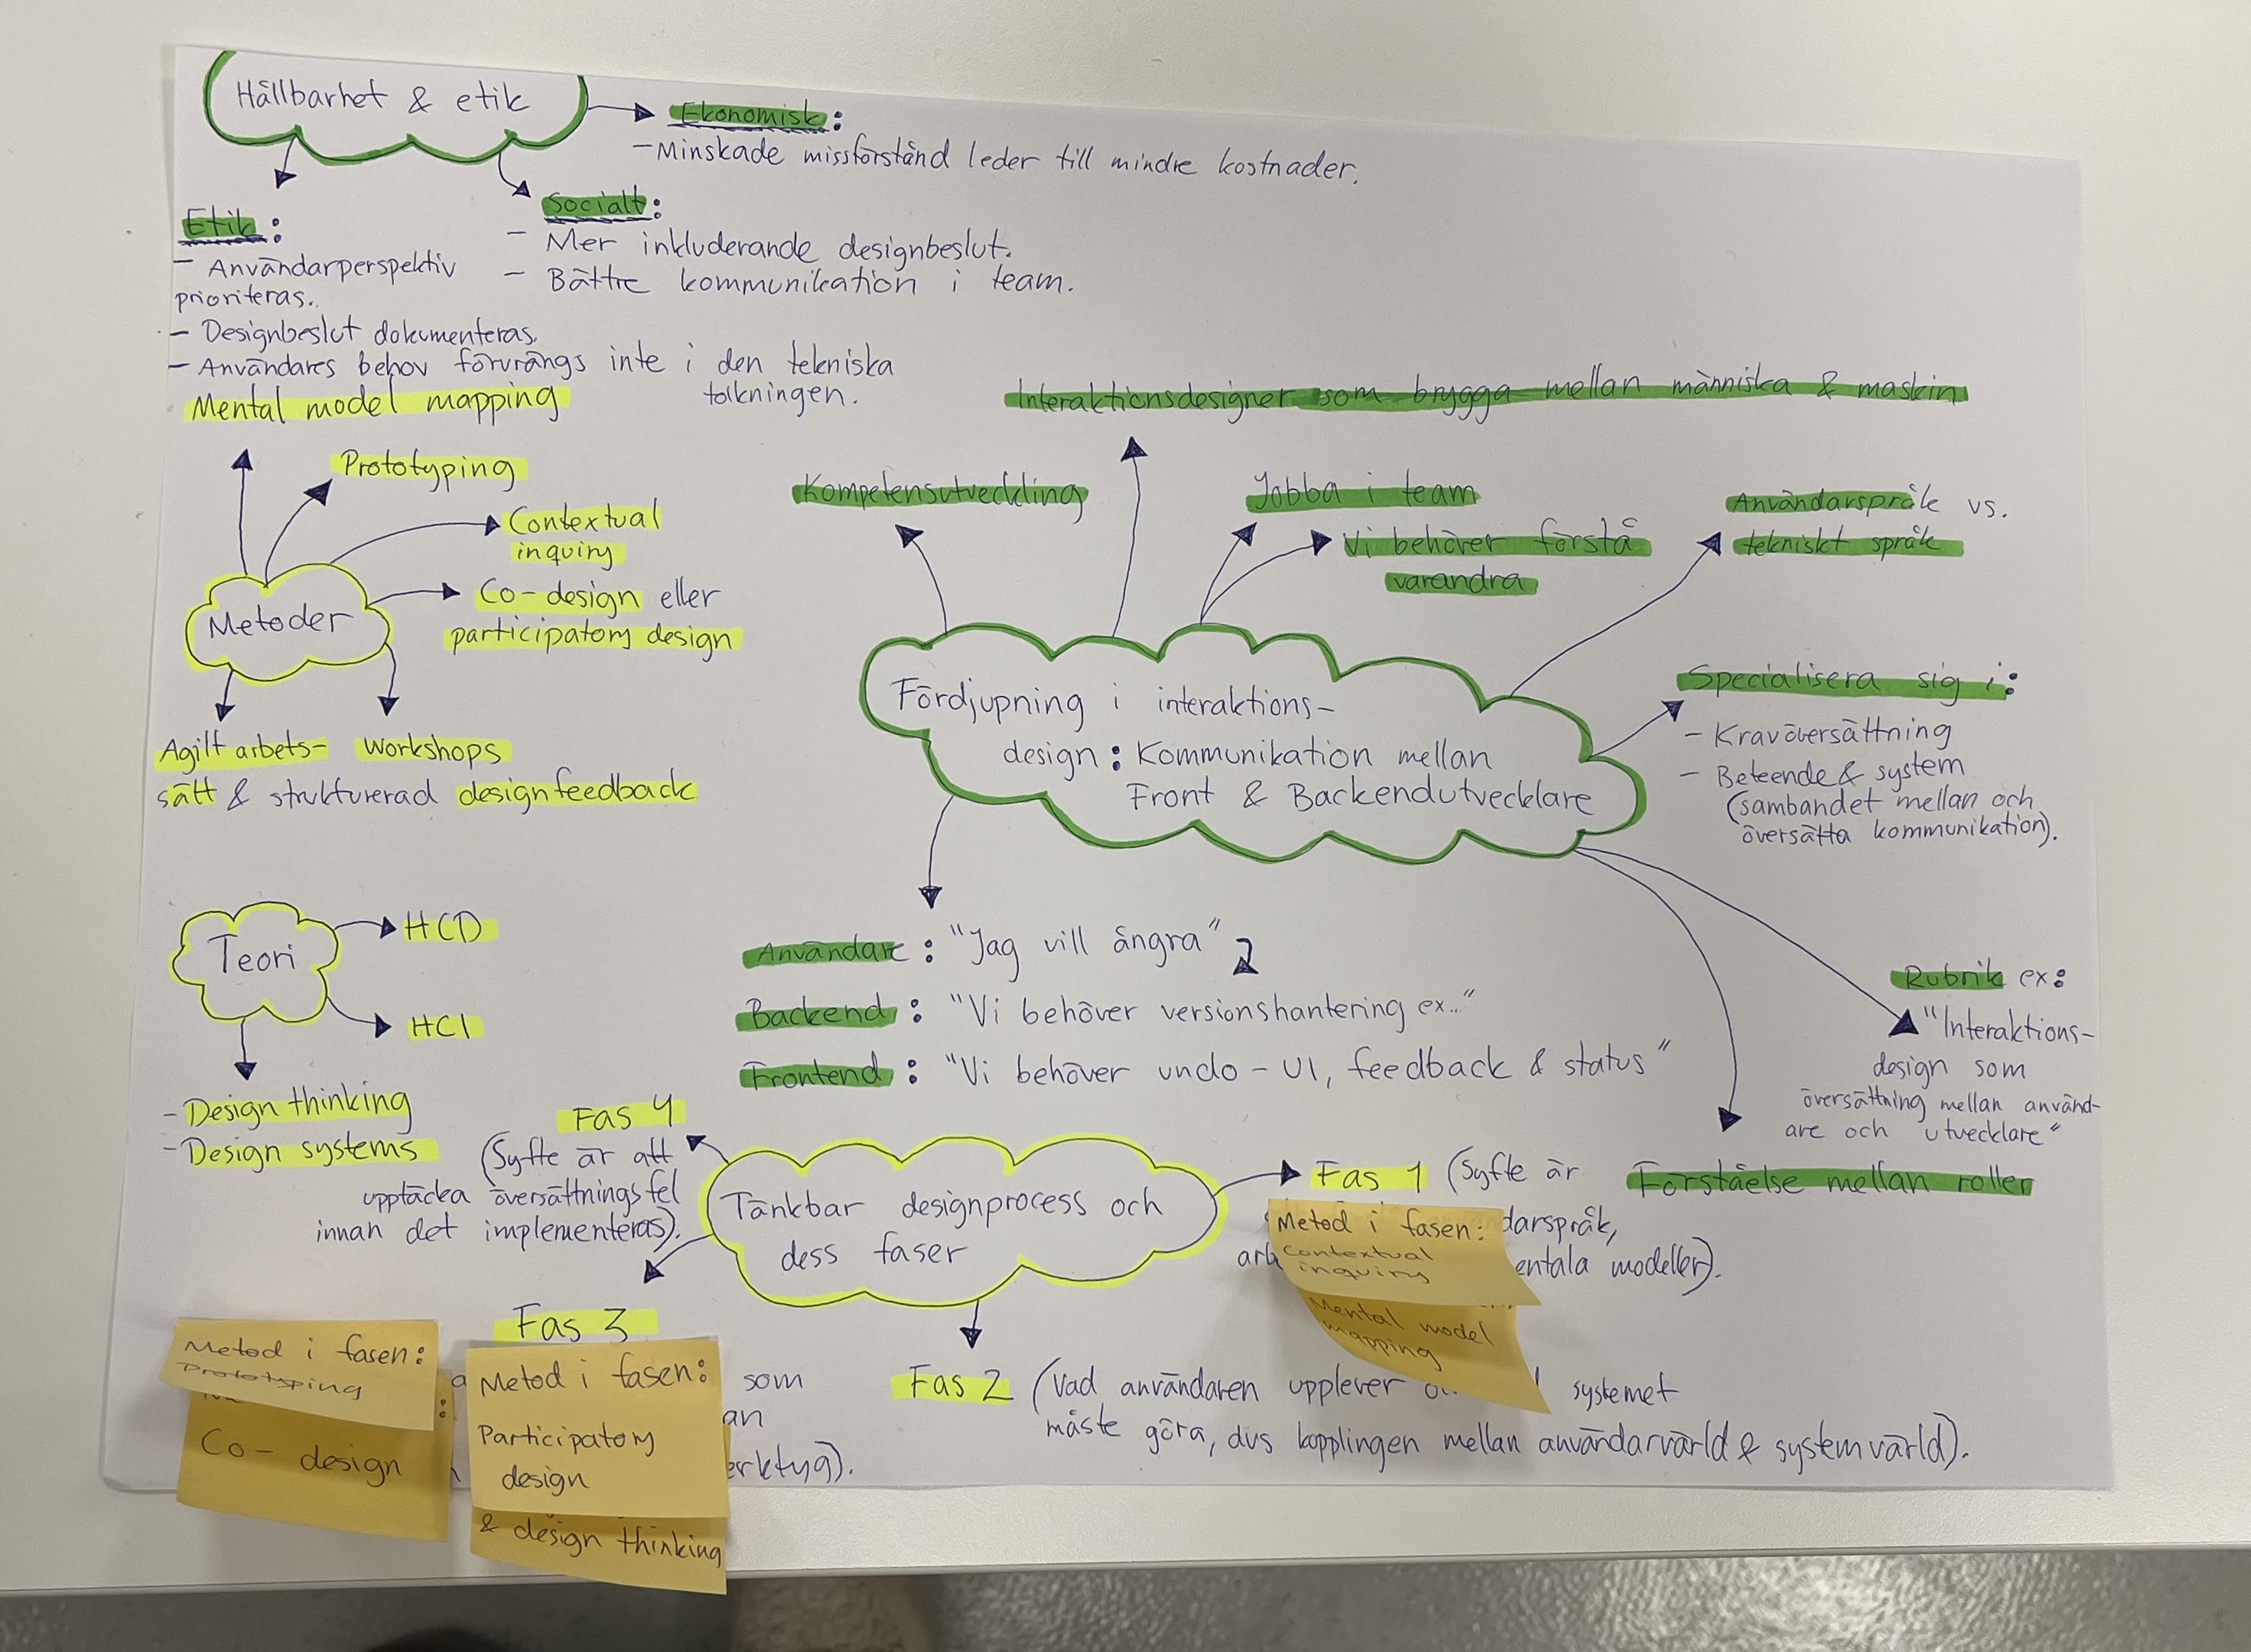 Hållbarhet & etik
Ekonomisk:
- Minskade missförstånd leder till mindre kostnader.
Etik:
- Användarperspektiv
prioriteras.
- Designbeslut dokumenteras.
- Användares behov förvrängs inte i den tekniska
tolkningen.
Socialt:
- Mer inkluderande designbeslut.
- Bättre kommunikation i team.
Mental model mapping
Prototyping
Contextual
inquiry
Co-design eller
participatory design
Metoder
Agilt arbets-
sätt & strukturerad designfeedback
Workshops
Interaktionsdesigner som brygga mellan människa & maskin
Kompetensutveckling
Jobba i team
Vi behöver förstå
varandra
Användarspråk vs.
tekniskt språk
Fördjupning i interaktions-
design: Kommunikation mellan
Front & Backendutvecklare
Specialisera sig i:
- Kravöversättning
- Beteende & system
(sambandet mellan och
översätta kommunikation).
Teori
HCD
HCI
- Design thinking
- Design systems
Användare: "Jag vill ångra"
Backend: "Vi behöver versionshantering ex.."
Frontend: "Vi behöver undo-UI, feedback & status"
Rubrik ex:
"Interaktions-
design som
översättning mellan använd-
are och utvecklare"
Förståelse mellan roller
Tänkbar designprocess och
dess faser
Fas 4
(Syfte är att
upptäcka översättningsfel
innan det implementeras).
Fas 1 (Syfte är
darspråk,
entala modeller).
Metod i fasen:
Contextual
inquiry
Mental model
mapping
Fas 3
som
an
erktyg).
Metod i fasen:
Prototyping
Co-design
Metod i fasen:
Participatory
design
& design thinking
Fas 2 (Vad användaren upplever systemet
måste göra, dvs kopplingen mellan användarvärld & systemvärld).